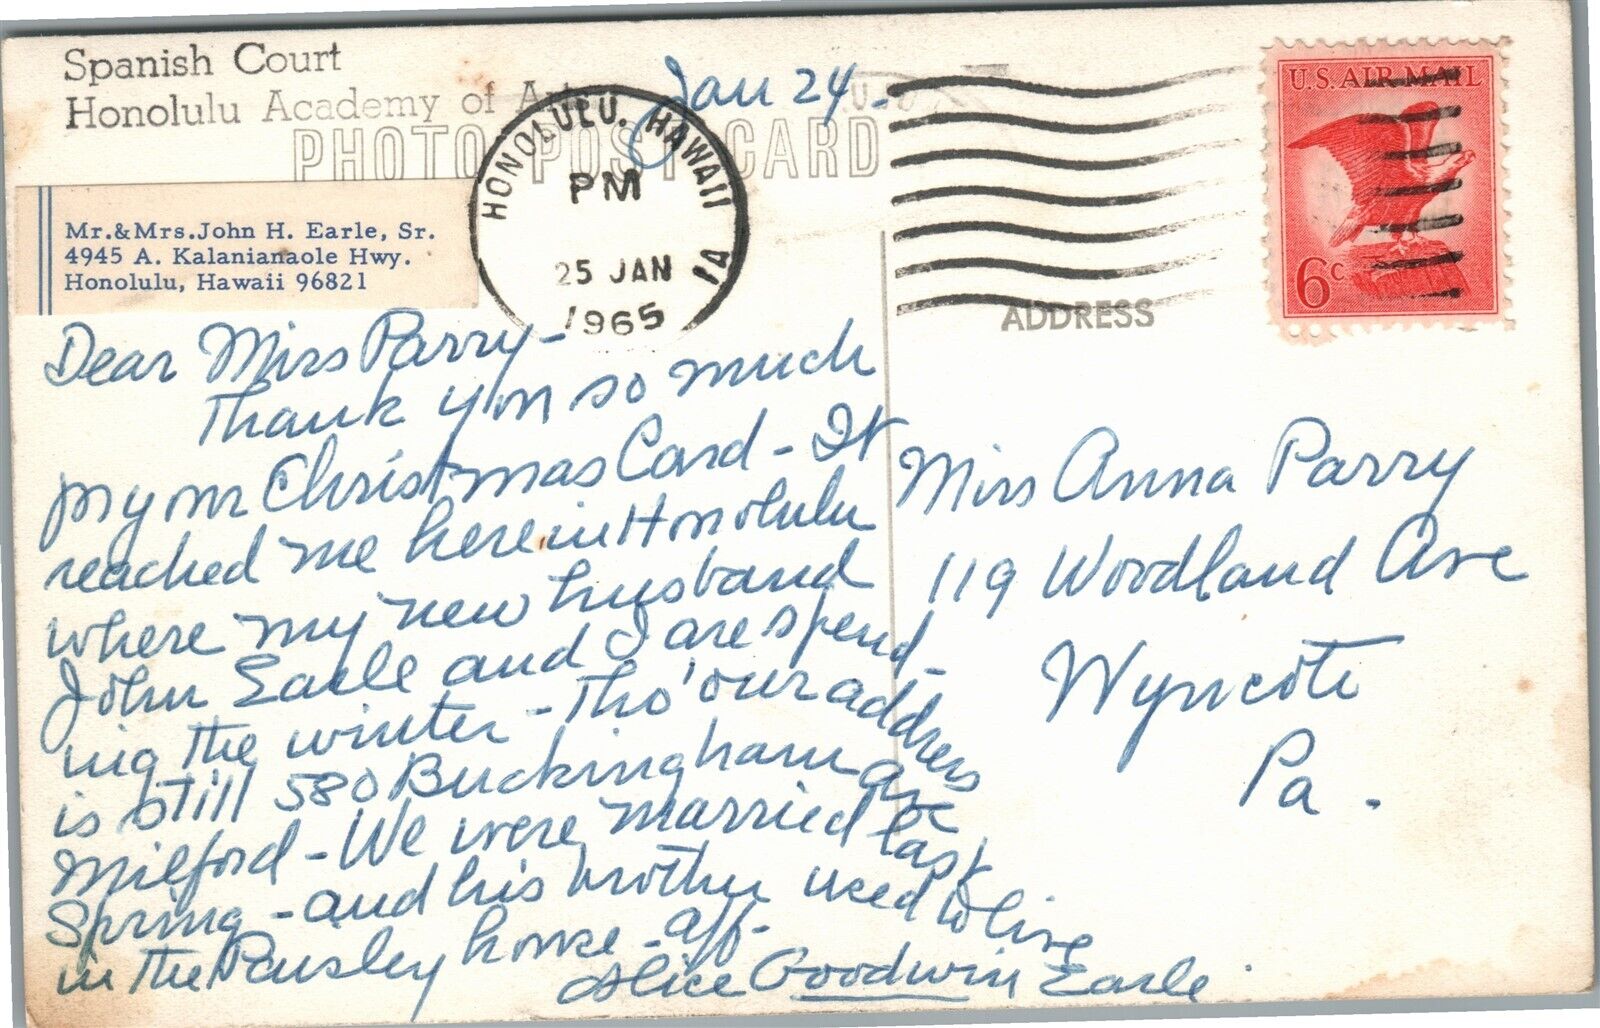 Spanish Court
Honolulu Academy of Arts
PHOTO POST CARD
Jan 24 -
HONOLULU, HAWAII
PM
25 JAN
1965
1A
U.S. AIR MAIL
6c
ADDRESS
Mr.&Mrs.John H. Earle, Sr.
4945 A. Kalanianaole Hwy.
Honolulu, Hawaii 96821
Dear Miss Parry-
Thank you so much
for your Christmas Card - It
reached me here in Honolulu
where my new husband
John Earle and I are spend-
ing the winter - Tho' our address
is still 580 Buckingham Ave
Milford - We were married last
Spring - and his brother used to live
in the Paisley house - aff.
Alice Goodwin Earle
Miss Anna Parry
119 Woodland Ave
Wyncote
Pa.